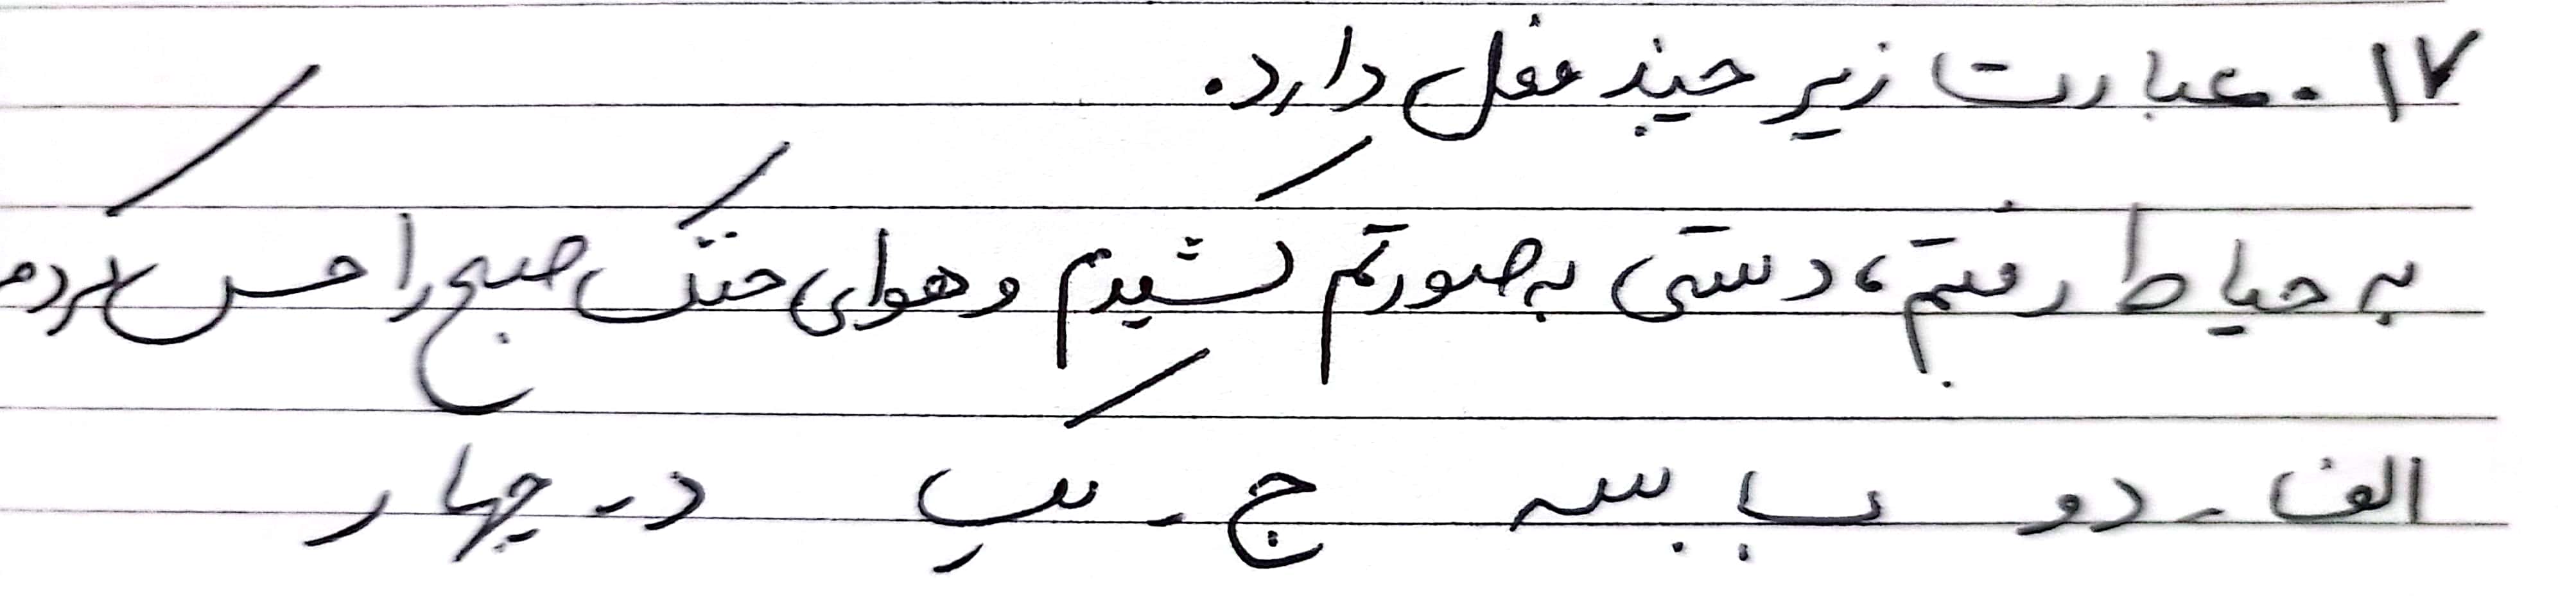 ۱۷. عبارت زیر چند فعل دارد.
به حیاط رفتم، دستی به صورتم کشیدم و هوای خنک صبح را حس کردم
الف - دو ب - سه ج - یک د - چهار